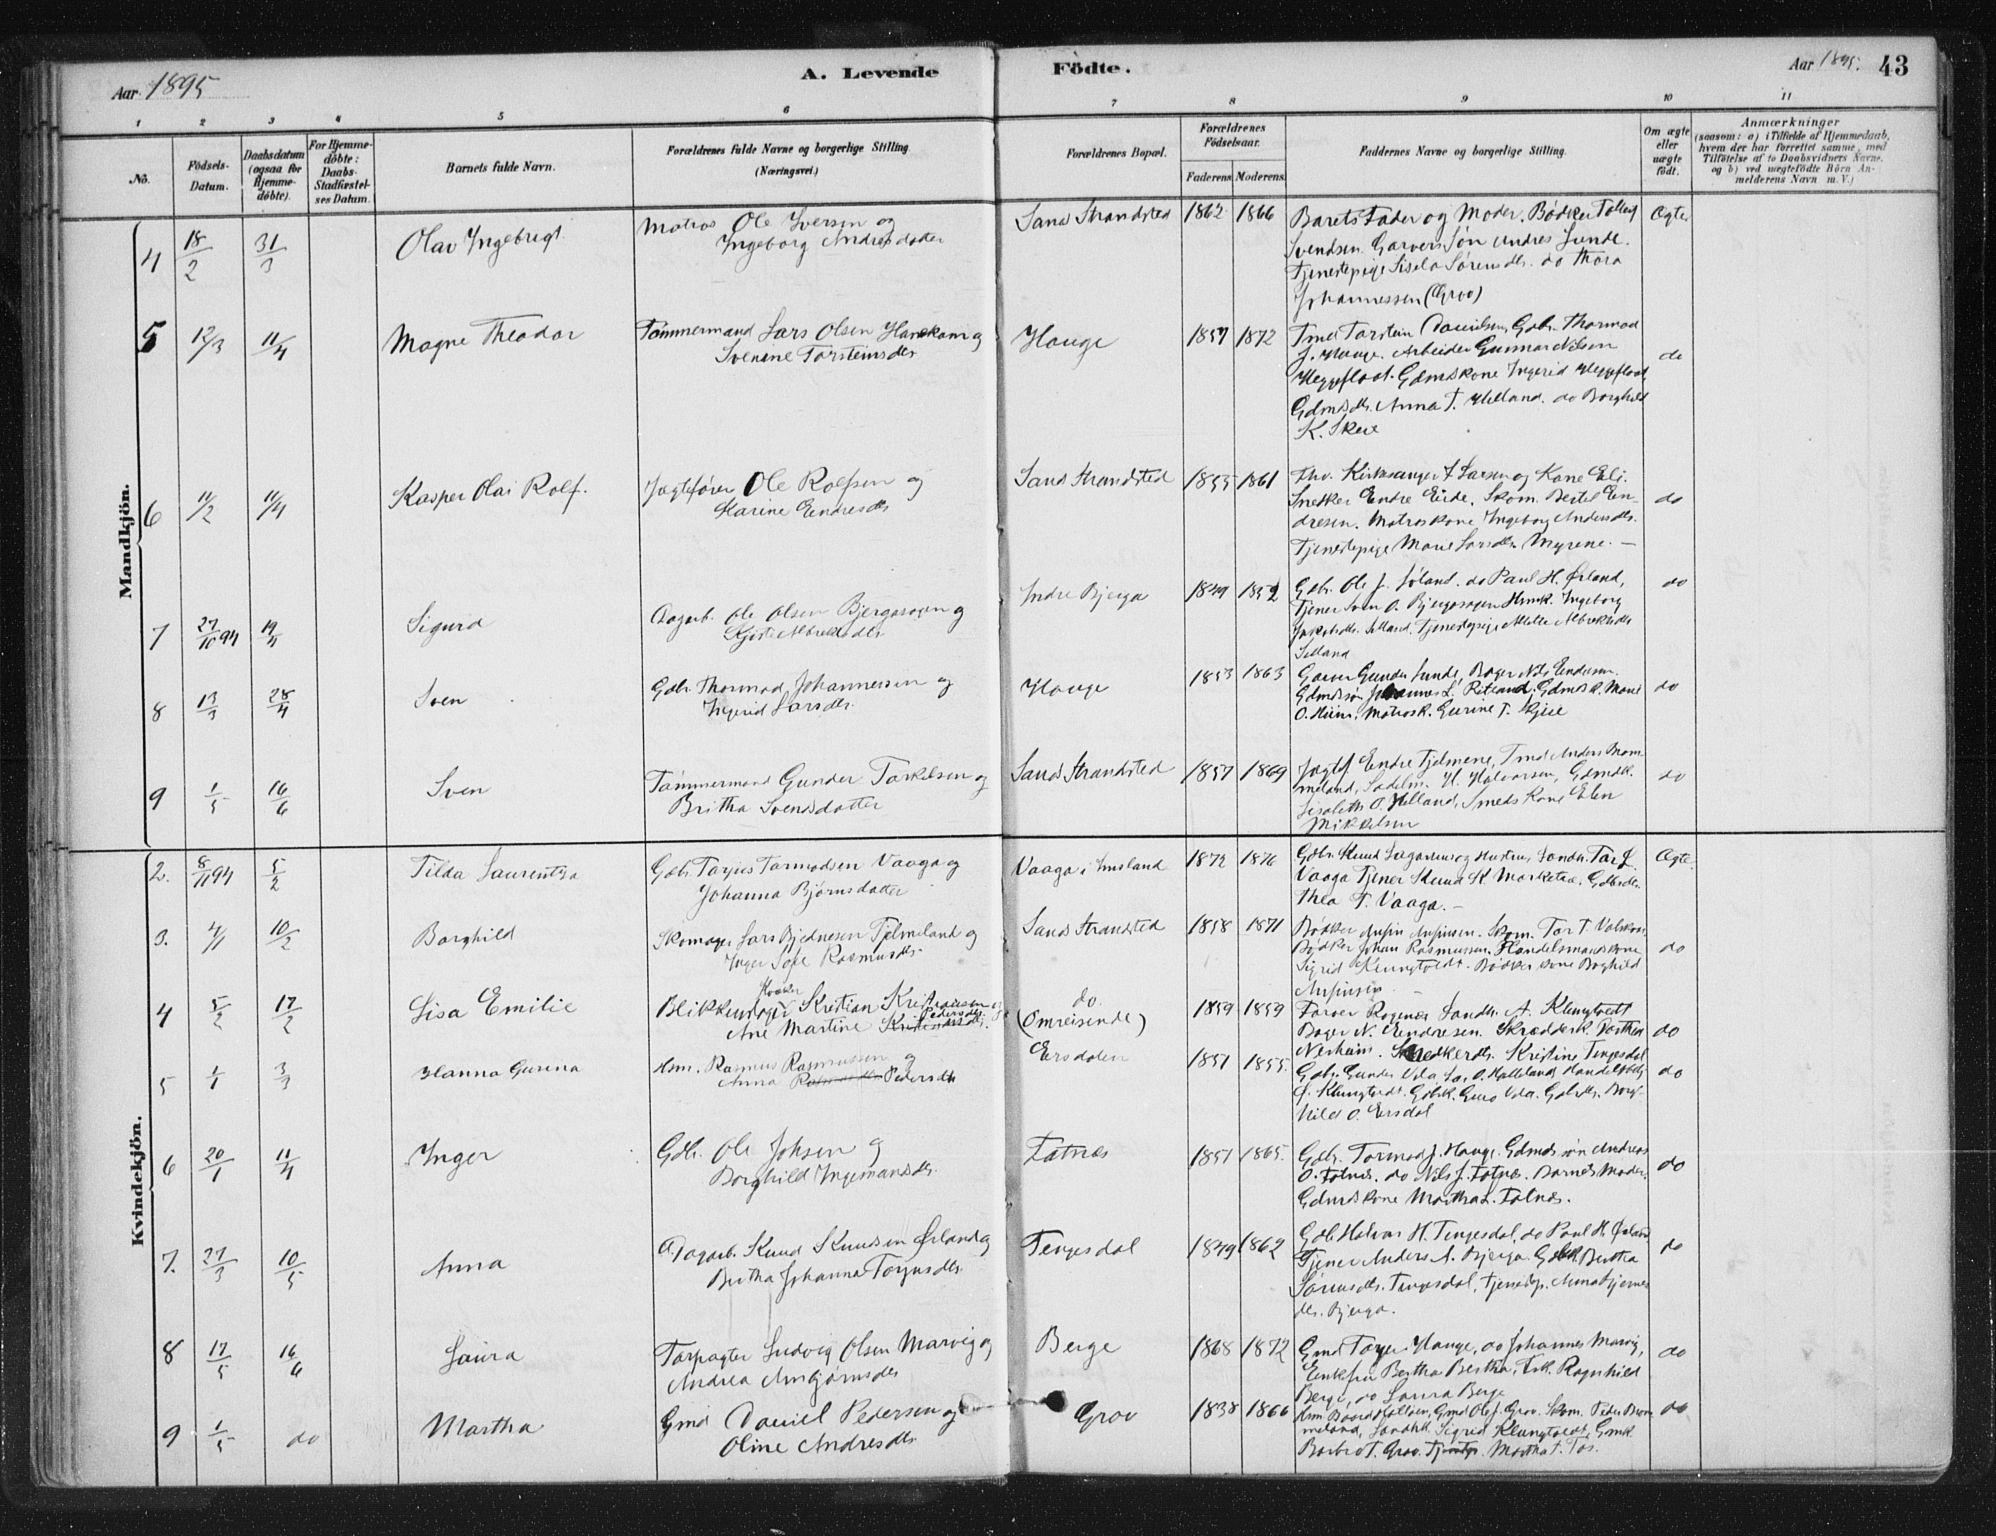 Aar 1895
A. Levende Födte.
Aar 1895. 43
1 2 3 4 5 6 7 8 9 10 11
No.
Födsels-Datum.
Daabsdatum (ogsaa for Hjemme-döbte).
For Hjemme-döbte: Daabs-Stadfæstel-ses Datum.
Barnets fulde Navn.
Forældrenes fulde Navne og borgerlige Stilling (Næringsvei.)
Forældrenes Bopæl.
Forældrenes Födselsaar.
Faderens. Moderens.
Faddernes Navne og borgerlige Stilling.
Om ægte eller uægte födt.
Anmærkninger
(saasom: a) i Tilfælde af Hjemmedaab, hvem der har forrettet samme, med Tilföielse af to Daabsvidners Navne. og b) ved uægtefödte Börn An-melderens Navn m. V.)
Mandkjön.
4 18/2 31/3 Olav Ingebregt.
Matros Ole Iversen og
Ingeborg Andresdatter
Sands Strandsted 1862 1866
Barets Fader og Moder. Bødker Tolleif
Svendsen. Garvers Søn Andres Lunde.
Tjenestepige Sisela Sørensdtr. do Thora
Johannessen (Grov)
Ægte
5 12/3 11/4 Magne Theodor
Tømmermand Lars Olsen Hanekam og
Svenine Torsteinsdtr
Hauge 1857 1872
Tmd Torstein Danielsen, Gdbr. Thormod
J. Hauge. Arbeider Gunnar Nilsen
Heggeflaat. Gdmskone Ingerid Heggeflaat,
Gdmdsdtr. Anna T. Helland. do Borghild
K. Skeie
do
6 11/2 11/4 Kasper Olai Rolf.
Jagtefører Ole Rolfsen og
Karine Endresdtr
Sands Strandsted 1855 1861
Fhv. Kirkesanger J Larsen og Kone Eli.
Snedker Endre Eide. Skom. Bertel En-
dresen. Matroskone Ingeborg Andersdtr.
Tjenestepige Marie Larsdtr. Myrene. —
do
7 27/10 94 19/4 Sigurd
Dagarb. Ole Olsen Bjergaskogen og
Kjersti Albretsdtr
Indre Bjerga 1849 1852
Gdbr. Ole J. Løland. do Paul H. Ørland,
Tjener Sven O. Bjergaskogen Hmk. Ingeborg
Jakobsdtr. Selland. Tjenestepige Albretsdtr
Selland
do
8 13/3 28/4 Sven
Gdbr. Thormod Johannessen og
Ingerid Larsdtr.
Hauge 1853 1863
Garver Gunder Lunde, Bager Nils Endresen.
Gdmdssøn Johannes L. Riteland. Gdmdsk. Marie
O. Hiim. Matrosk. Gurine T. Skjeie
do
9 1/5 16/6 Sven
Tømmermand Gunder Torkelsen og
Britha Svendsdatter
Sands Strandsted 1857 1869
Jagtef Endre Fjelmene, Tmd Anders Brom-
meland, Sadelm. H. Halvorsen, Gdmdk.
Lisabeth O. Helland, Smeds Kone Elen
Mikkelsen
do
Kvindekjön.
2. 8/11 94 5/2 Tilda Laurentza
Gdbr. Torjus Tormodsen Vaaga og
Johanna Bjørnsdatter
Vaaga i Imsland 1872 1876
Gdbr. Knud Hustru, Landh. Tor J.
Vaaga Tjener Knud K. Marketræ. Gdbrdtr.
Thea T. Vaaga. —
Ægte
3. 4/1 10/2 Borghild
Skomager Lars Bjednesen Fjelmeland og
Inger Sofie Rasmusdtr.
Sands Strandsted 1858 1871
Bødker Aufin Aufinsen. Skom. Tor T. Valskaar
Bødker Johan Rasmussen, Handelsmandskone
Sigrid Klungtvedt. Bødker kone Borghild
Aufinsen —
do
4 5/2 17/2 Lisa Emilie
Blikkenslager Kristian Kristiansen og
Ane Martine Pedersdtr.
do. (Omreisende) 1859 1859
Farver Rognæs Landh. A. Klungtvedt
Bager N. Endresen. Skrædderk. Dorthea
Nesheim. Snedkerdtr. Kristine Tengesdal
do
5 1/1 3/3 Hanna Gurina
Hsm. Rasmus Rasmussen og
Anna Pedersdtr
Eirsdalen 1851 1855.
Gdbr. Gunder Vela O. Halleland Handelsbetj
J. Klungtvedt. Gdbrk. Guro Vela. Gdbrdtr. Borg-
hild O. Eirsdal
do
6 20/1 11/4 Inger
Gdbr. Ole Johsen og
Borghild Ingemansdtr.
Fatnæs 1851 1865.
Gdbr. Tormod J. Hauge. Gdmds søn Andreas
O. Fatnæs. do Nils J. Fatnæs. Barnets Moder.
Gdmdskone Martha L. Fatnæs.
do
7. 27/3 10/5 Anna
Dagarb. Knud Knudsen Ørland og
Bertha Johanna Torjusdtr.
Tengesdal 1849 1862
Gdb. Halvor H. Tengesdal, do Paul H. Ørland
Tjener Anders A. Bjerga Gdbk. Bertha
Sørensdtr. Tengesdal, Tjenestp. Anna Bjørnes
dtr. Bjerga.
do
8 17/5 16/6 Laura
Forpagter Ludvig Olsen Marvig og
Andrea Arnbjørnsdtr
Berge 1868 1872
Gmd Torger Hauge, do Johannes Marvig,
Enkefru Bertha Bertha, Frk. Ragnhild
Berge, do Laura Berge
do
9 1/5 do Martha
Gmd Daniel Pedersen og
Oline Andresdtr
Grov 1838 1866
Hsm Baard Gmd Ole J. Grov. Skom. Peder Brom-
meland, Landhk. Sigrid Klungtvedt, Gmk.
Barbro T. Grov. Martha T. Tos.
do